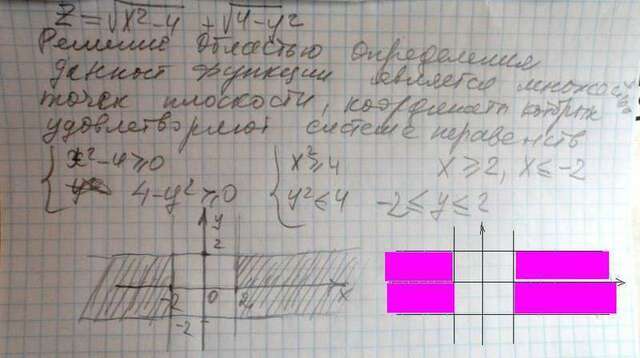 Z = √x²-4 + √4-y²
Решение Областью определения
данной функции является множес
точек плоскости, координаты которых
удовлетворяют системе неравенств
{ x²-4≥0 { x²≥4 x≥2, x≤-2
4-y²≥0 y²≤4 -2≤y≤2
y
2
-2 0 2 x
-2